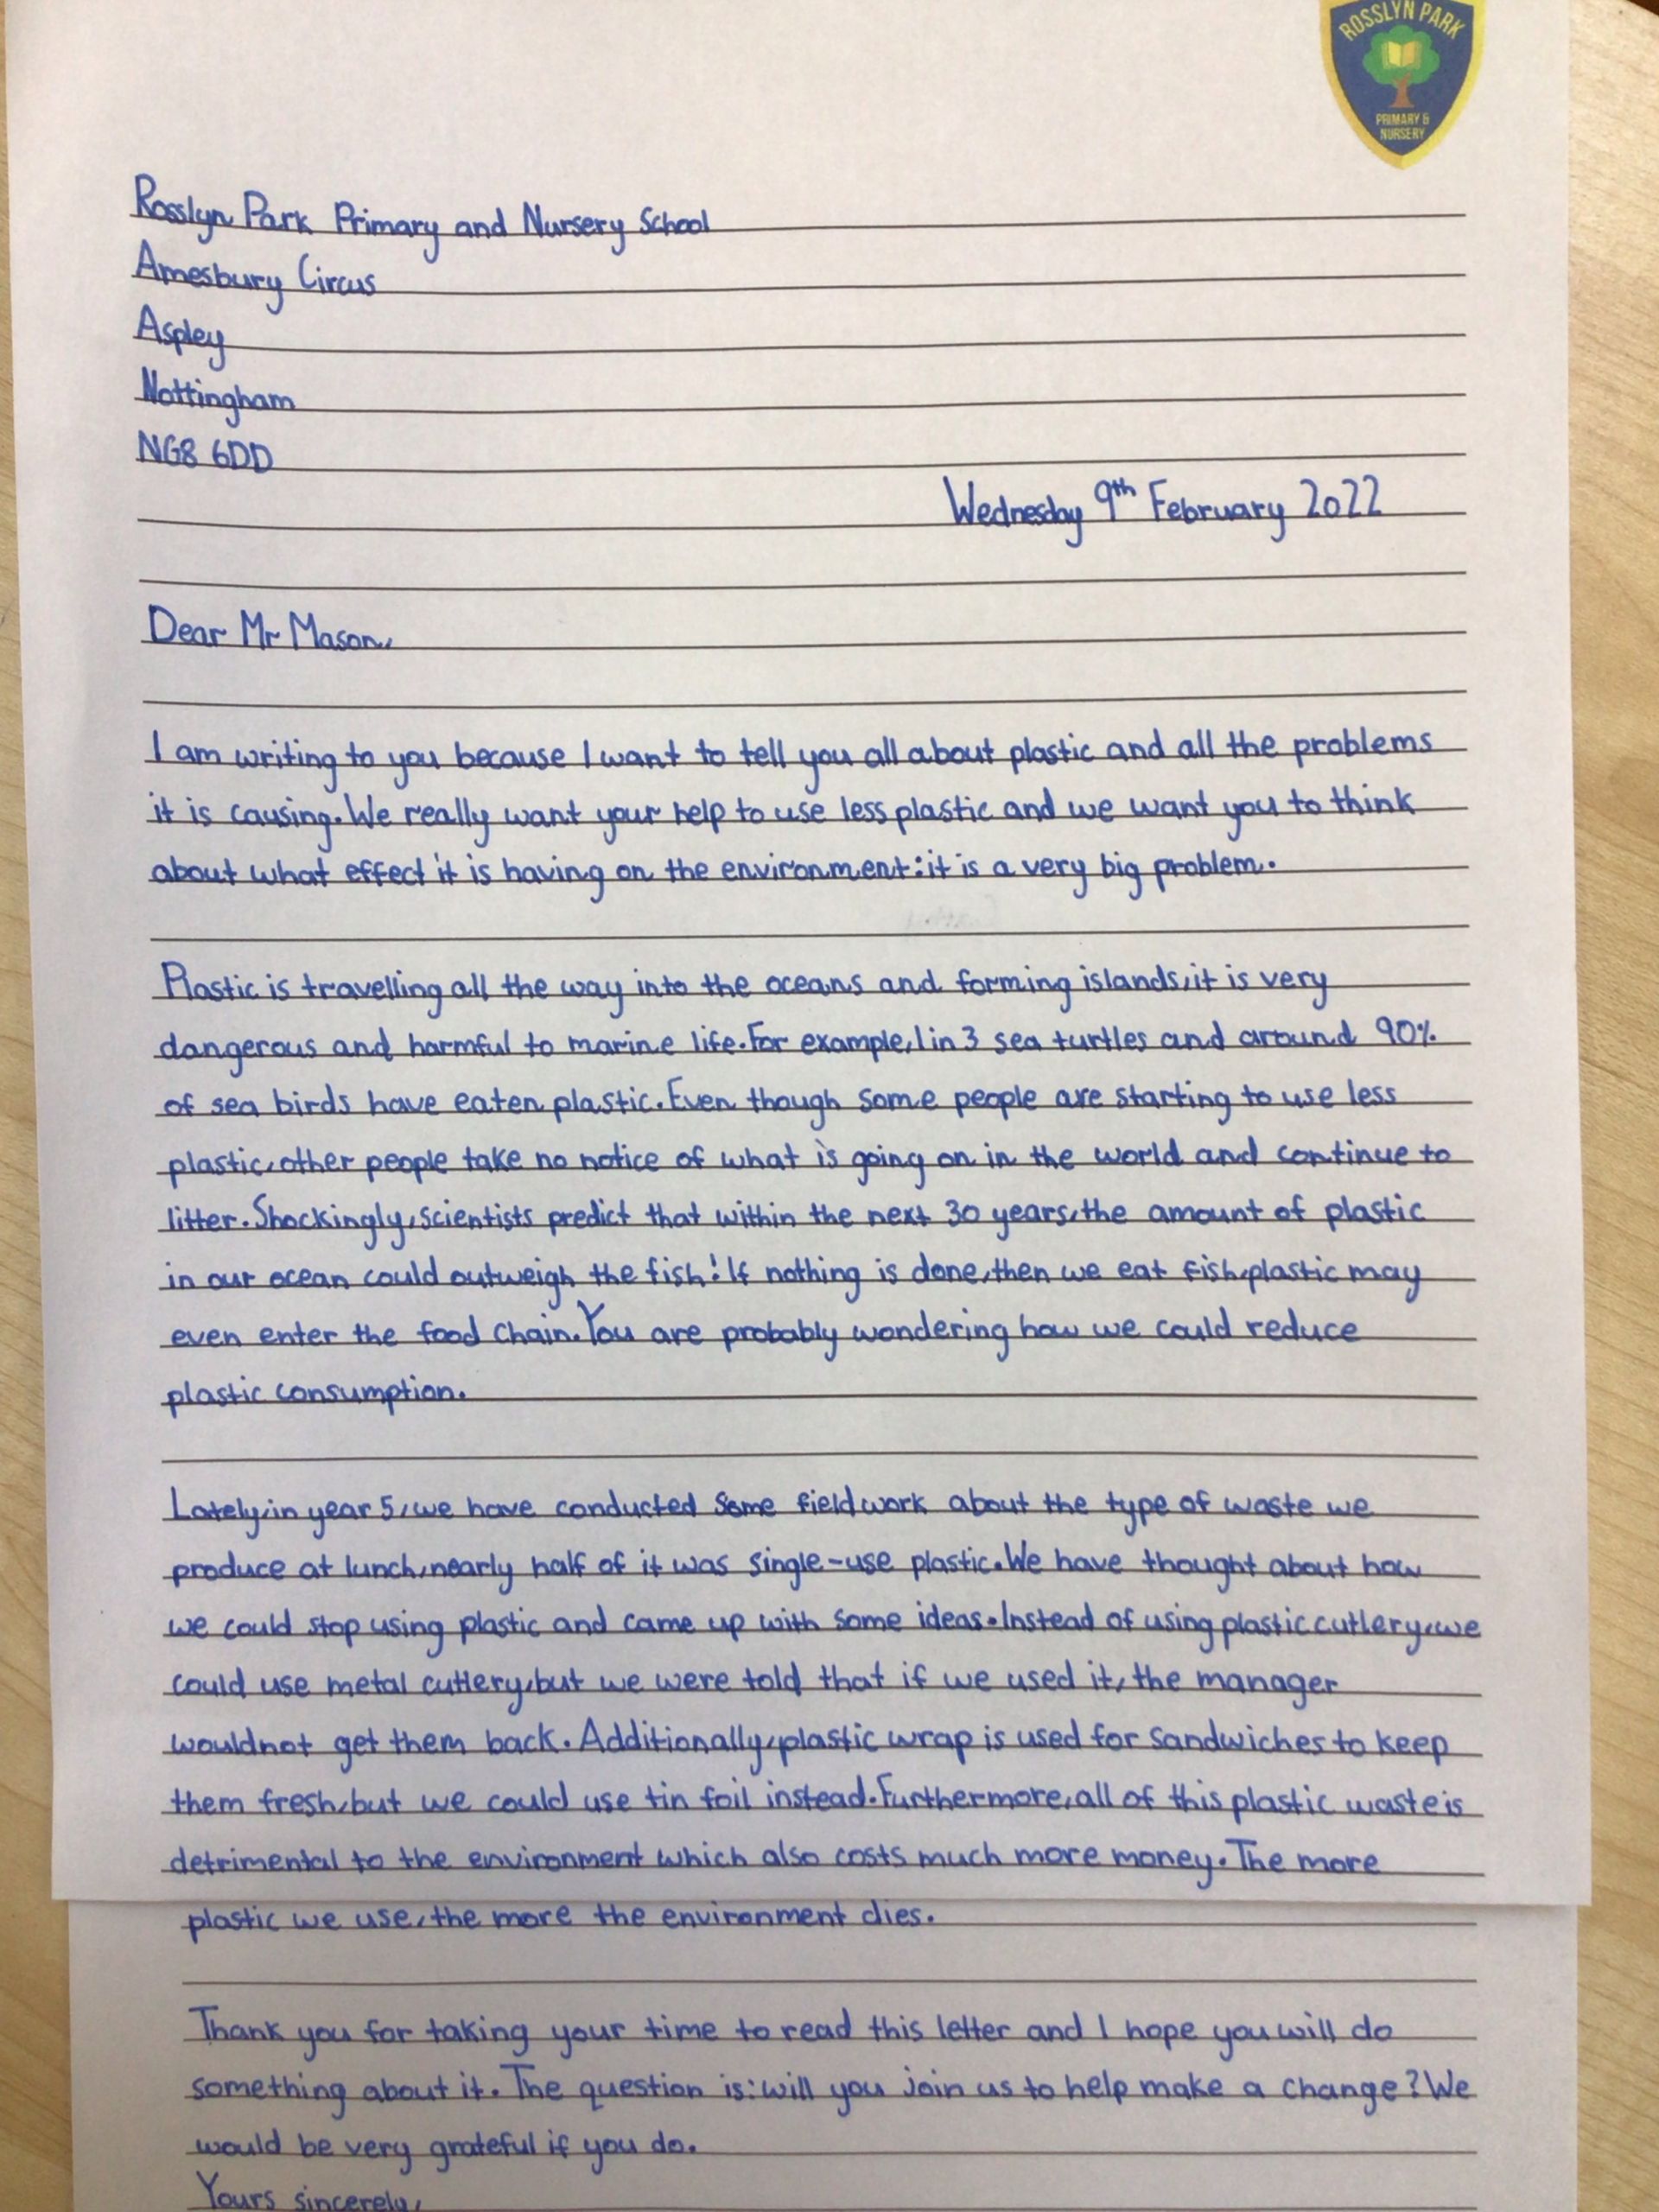 ROSSLYN PARK
PRIMARY &
NURSERY
Rosslyn Park Primary and Nursery School
Amesbury Circus
Aspley
Nottingham
NG8 6DD
Wednesday 9th February 2022
Dear Mr Mason,
I am writing to you because I want to tell you all about plastic and all the problems
it is causing. We really want your help to use less plastic and we want you to think
about what effect it is having on the environment: it is a very big problem.
Plastic is travelling all the way into the oceans and forming islands, it is very
dangerous and harmful to marine life. For example, 1 in 3 sea turtles and around 90%
of sea birds have eaten plastic. Even though some people are starting to use less
plastic, other people take no notice of what is going on in the world and continue to
litter. Shockingly, scientists predict that within the next 30 years, the amount of plastic
in our ocean could outweigh the fish! If nothing is done, then we eat fish, plastic may
even enter the food chain. You are probably wondering how we could reduce
plastic consumption.
Lately, in year 5, we have conducted some fieldwork about the type of waste we
produce at lunch, nearly half of it was single-use plastic. We have thought about how
we could stop using plastic and came up with some ideas. Instead of using plastic cutlery, we
could use metal cutlery, but we were told that if we used it, the manager
wouldnot get them back. Additionally, plastic wrap is used for sandwiches to keep
them fresh, but we could use tin foil instead. Furthermore, all of this plastic waste is
detrimental to the environment which also costs much more money. The more
plastic we use, the more the environment dies.
Thank you for taking your time to read this letter and I hope you will do
something about it. The question is: will you join us to help make a change? We
would be very grateful if you do.
Yours sincerely,